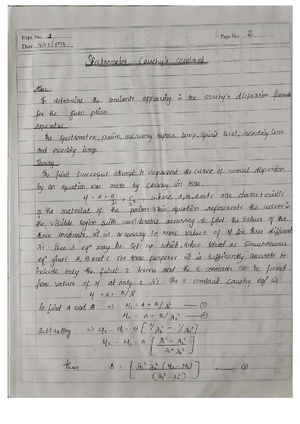 Expt. No. 1
Page No. 2
Date
Spectrometer - Cauchy's constant
Aim
To determine the constants appearing in the cauchy's dispersion formula
for the given prism.
Apparatus
The spectrometer, prism, mercury vapour lamp, spirit level, reading lens
and reading lamp.
Theory
The first successful attempt to represent the curve of normal dispersion
by an equation was made by cauchy in
where A, B and C are
of the material of the prism this equation represents the curve in
the visible region with considerable accuracy to find the values of the
three constants, it is necessary to know values of μ for three different
λ's then 3 eqn may be set up which when solved as simultaneous
eqn gives A, B and C. For some purposes it is sufficiently accurate to
include only the first 2 terms and the 2 constants can be found
from values of μ at only 2 λ's. The 2 constant cauchy eqn is
μ = A + B/λ²
To find A and B ⇒ μ₁ = A + B/λ₁² — ①
μ₂ = A + B/λ₂² — ②
Subtracting ⇒ μ₂ - μ₁ = B [1/λ₂² - 1/λ₁²]
μ₂ - μ₁ = B [λ₁² - λ₂² / λ₁² λ₂²]
thus B = [λ₁² λ₂² (μ₂ - μ₁) / (λ₁² - λ₂²)] — ③